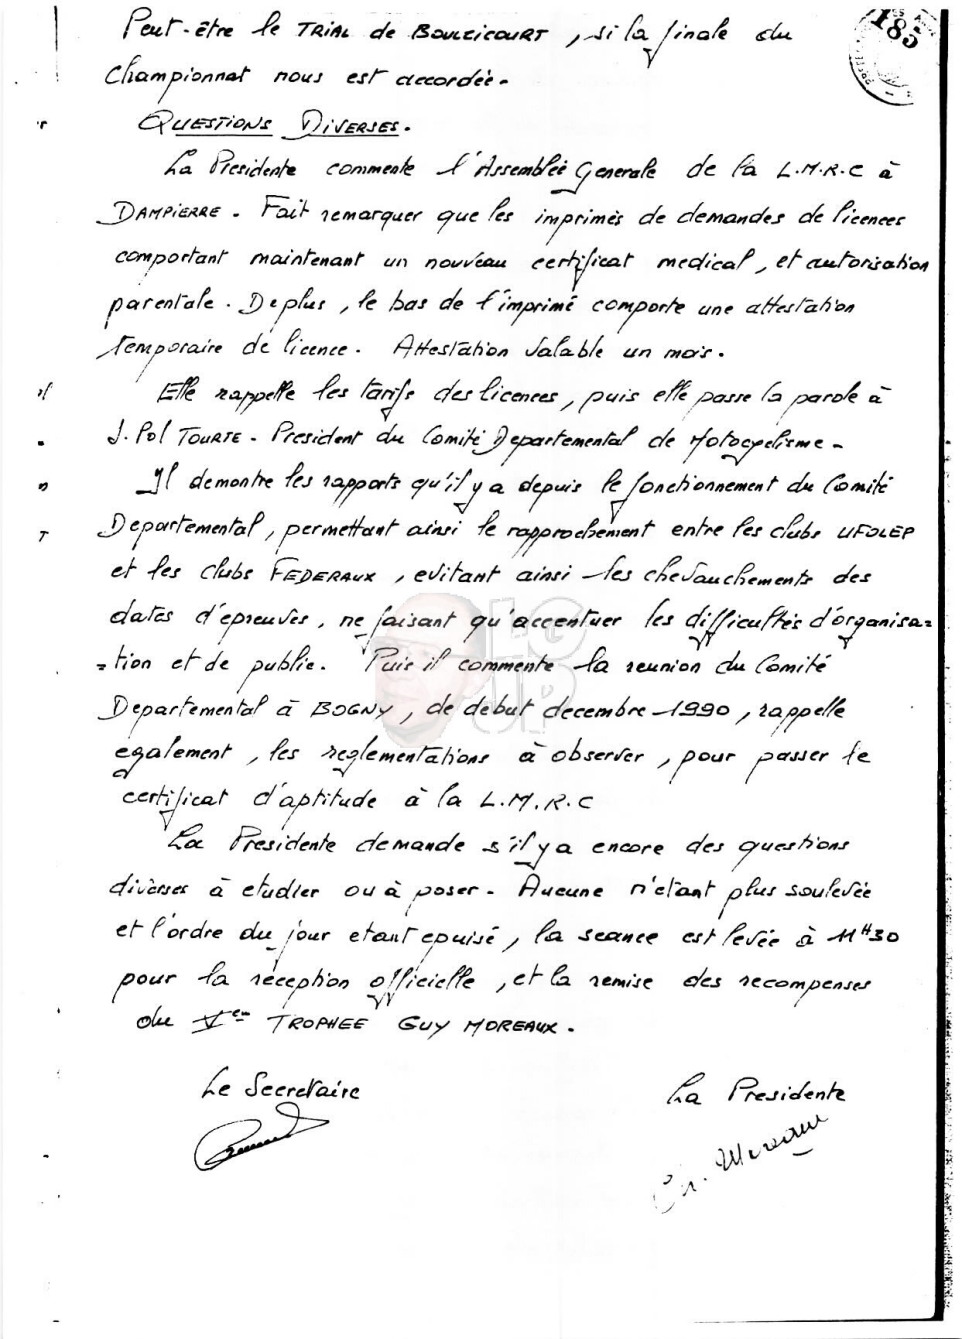 185
Peut-être le TRIAL de BOULZICOURT, si la finale du
Championnat nous est accordée-
QUESTIONS DIVERSES.
La Presidente commente l'Assemblée Generale de la L.M.R.C à
DAMPIERRE. Fait remarquer que les imprimés de demandes de licences
comportant maintenant un nouveau certificat medical, et autorisation
parentale. De plus, le bas de l'imprimé comporte une attestation
temporaire de licence. Attestation valable un mois.
Elle rappelle les tarifs des licences, puis elle passe la parole à
J. Pol TOURTE - President du Comité Departemental de Motocyclisme-
Il demontre les rapports qu'il y a depuis le fonctionnement du Comité
Departemental, permettant ainsi le rapprochement entre les clubs UFOLEP
et les clubs FEDERAUX, evitant ainsi les chevauchements des
dates d'epreuves, ne faisant qu'accentuer les difficultés d'organisa=
=tion et de public. Puis il commente la reunion du Comité
Departemental à BOGNY, de debut decembre 1990, rappelle
egalement, les reglementations à observer, pour passer le
certificat d'aptitude à la L.M.R.C
La Presidente demande s'il y a encore des questions
diverses à etudier ou à poser- Aucune n'etant plus soulevée
et l'ordre du jour etant epuisé, la seance est levée à 11H30
pour la réception officielle, et la remise des recompenses
du Vem TROPHEE GUY MOREAUX.
Le Secretaire
La Presidente
Ch. Moreaux
LG UP